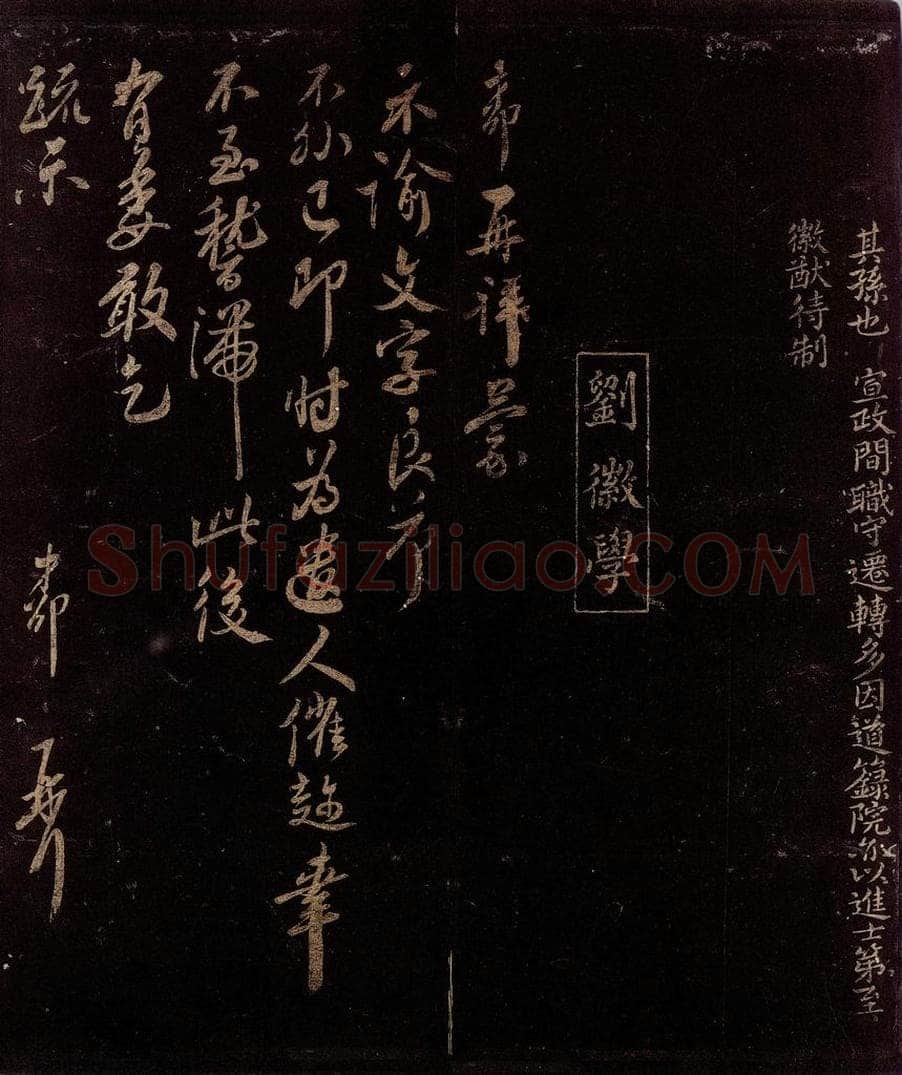 其孫也宣政間職守遷轉多因道籙院亦以進士第至
徽猷待制
劉徽學
再拜蒙
示諭文字良荷
不外已即时为遣人催趁幸
不至稽滞此後
有委敢乞
疏示
再拜
Shufaziliao.COM